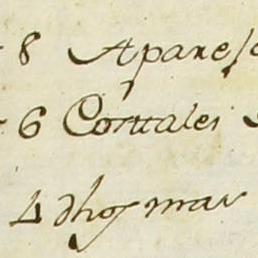 8 Aparejo
6 Cortales
4 dhos mas